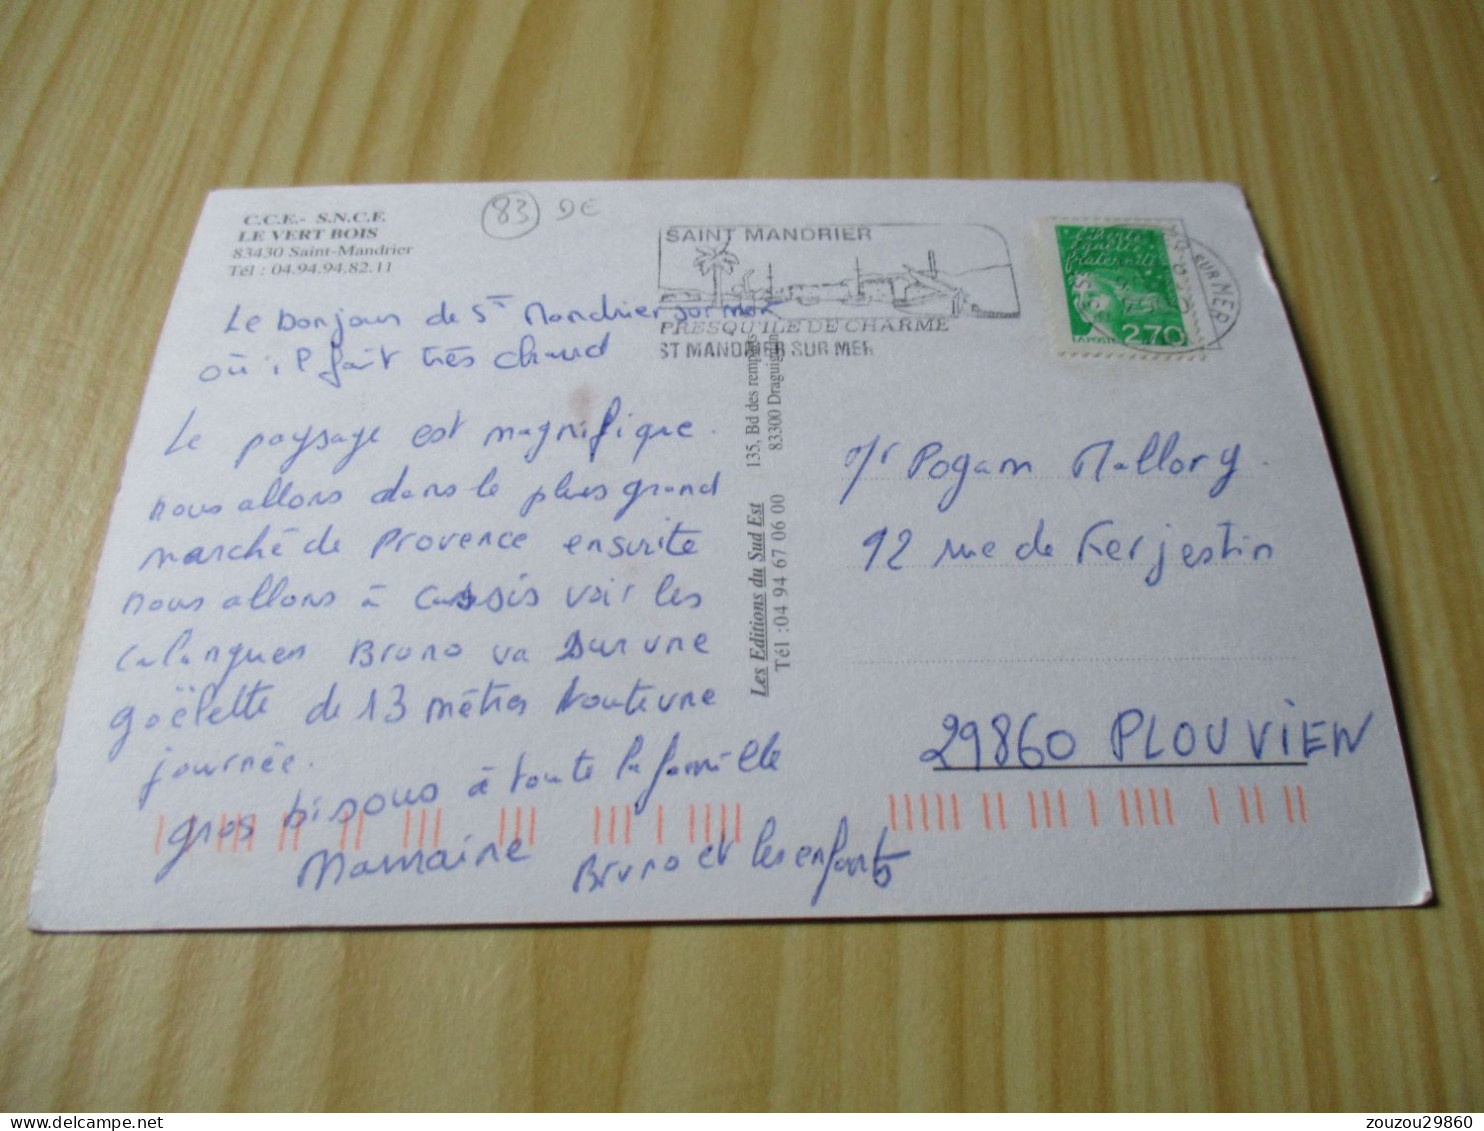 C.C.E.- S.N.C.F.
LE VERT BOIS
83430 Saint-Mandrier
Tél : 04.94.94.82.11
83 DE
SAINT MANDRIER
PRESQU'ILE DE CHARME
ST MANDRIER SUR MER
SUR MER
liberté
égalité
fraternité
LA POSTE 2,70
Le bonjour de St Mandrier sur mer
où il fait très chaud
Le paysage est magnifique.
nous allons dans le plus grand
marché de Provence ensuite
nous allons à Cassis voir les
calangues Bruno va sur une
goëlette de 13 mètres toute une
journée.
gros bisous à toute la famille
Mamaine
Bruno et les enfants
Les Editions du Sud Est 135, Bd des remparts
Tél : 04 94 67 06 00 83300 Draguignan
Mr Pogam Mallory.
12 rue de Kerjestin
29860 PLOUVIEN
zouzou29860